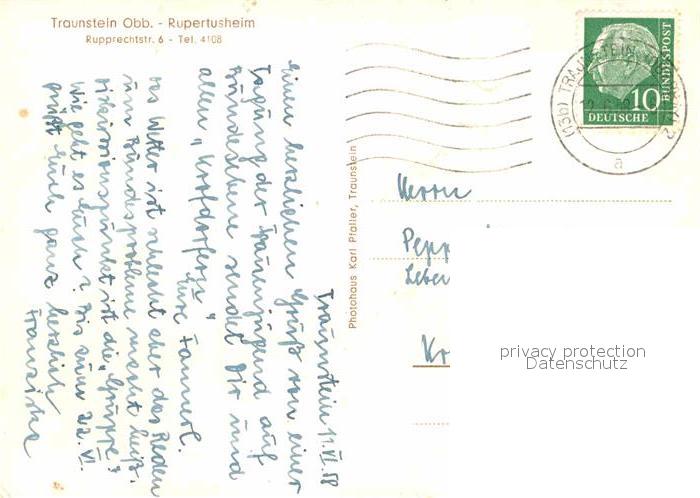 Traunstein Obb. - Rupertusheim
Rupprechtstr. 6 - Tel. 4108
Traunstein 11.VI.58
Einen herzlichen Gruß von einer
Tagung der Frauenjugend auf
Bundesebene sendet Dir und
allen „Krofdorfern"
Eure Fannerl.
Das Wetter ist schlecht aber das Reden
um Bundesprobleme macht heiß.
Diskussionspunkt ist die „Gruppe".
Wie geht es Euch? Bis zum 22.VI.
grüßt Euch ganz herzlich
Franziska
Photohaus Karl Pfaller, Traunstein
10
DEUTSCHE
BUNDESPOST
(13b) TRAUNSTEIN
a
Herrn
Pepp
Leber
Kr
privacy protection
Datenschutz